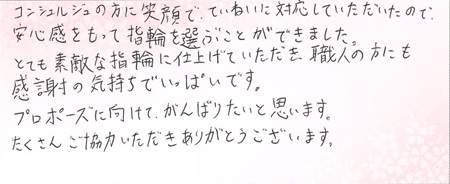 コンシェルジュの方に笑顔で、ていねいに対応していただいたので、
安心感をもって指輪を選ぶことができました。
とても素敵な指輪に仕上げていただき、職人の方にも
感謝の気持ちでいっぱいです。
プロポーズに向けて、がんばりたいと思います。
たくさんご協力いただきありがとうございます。